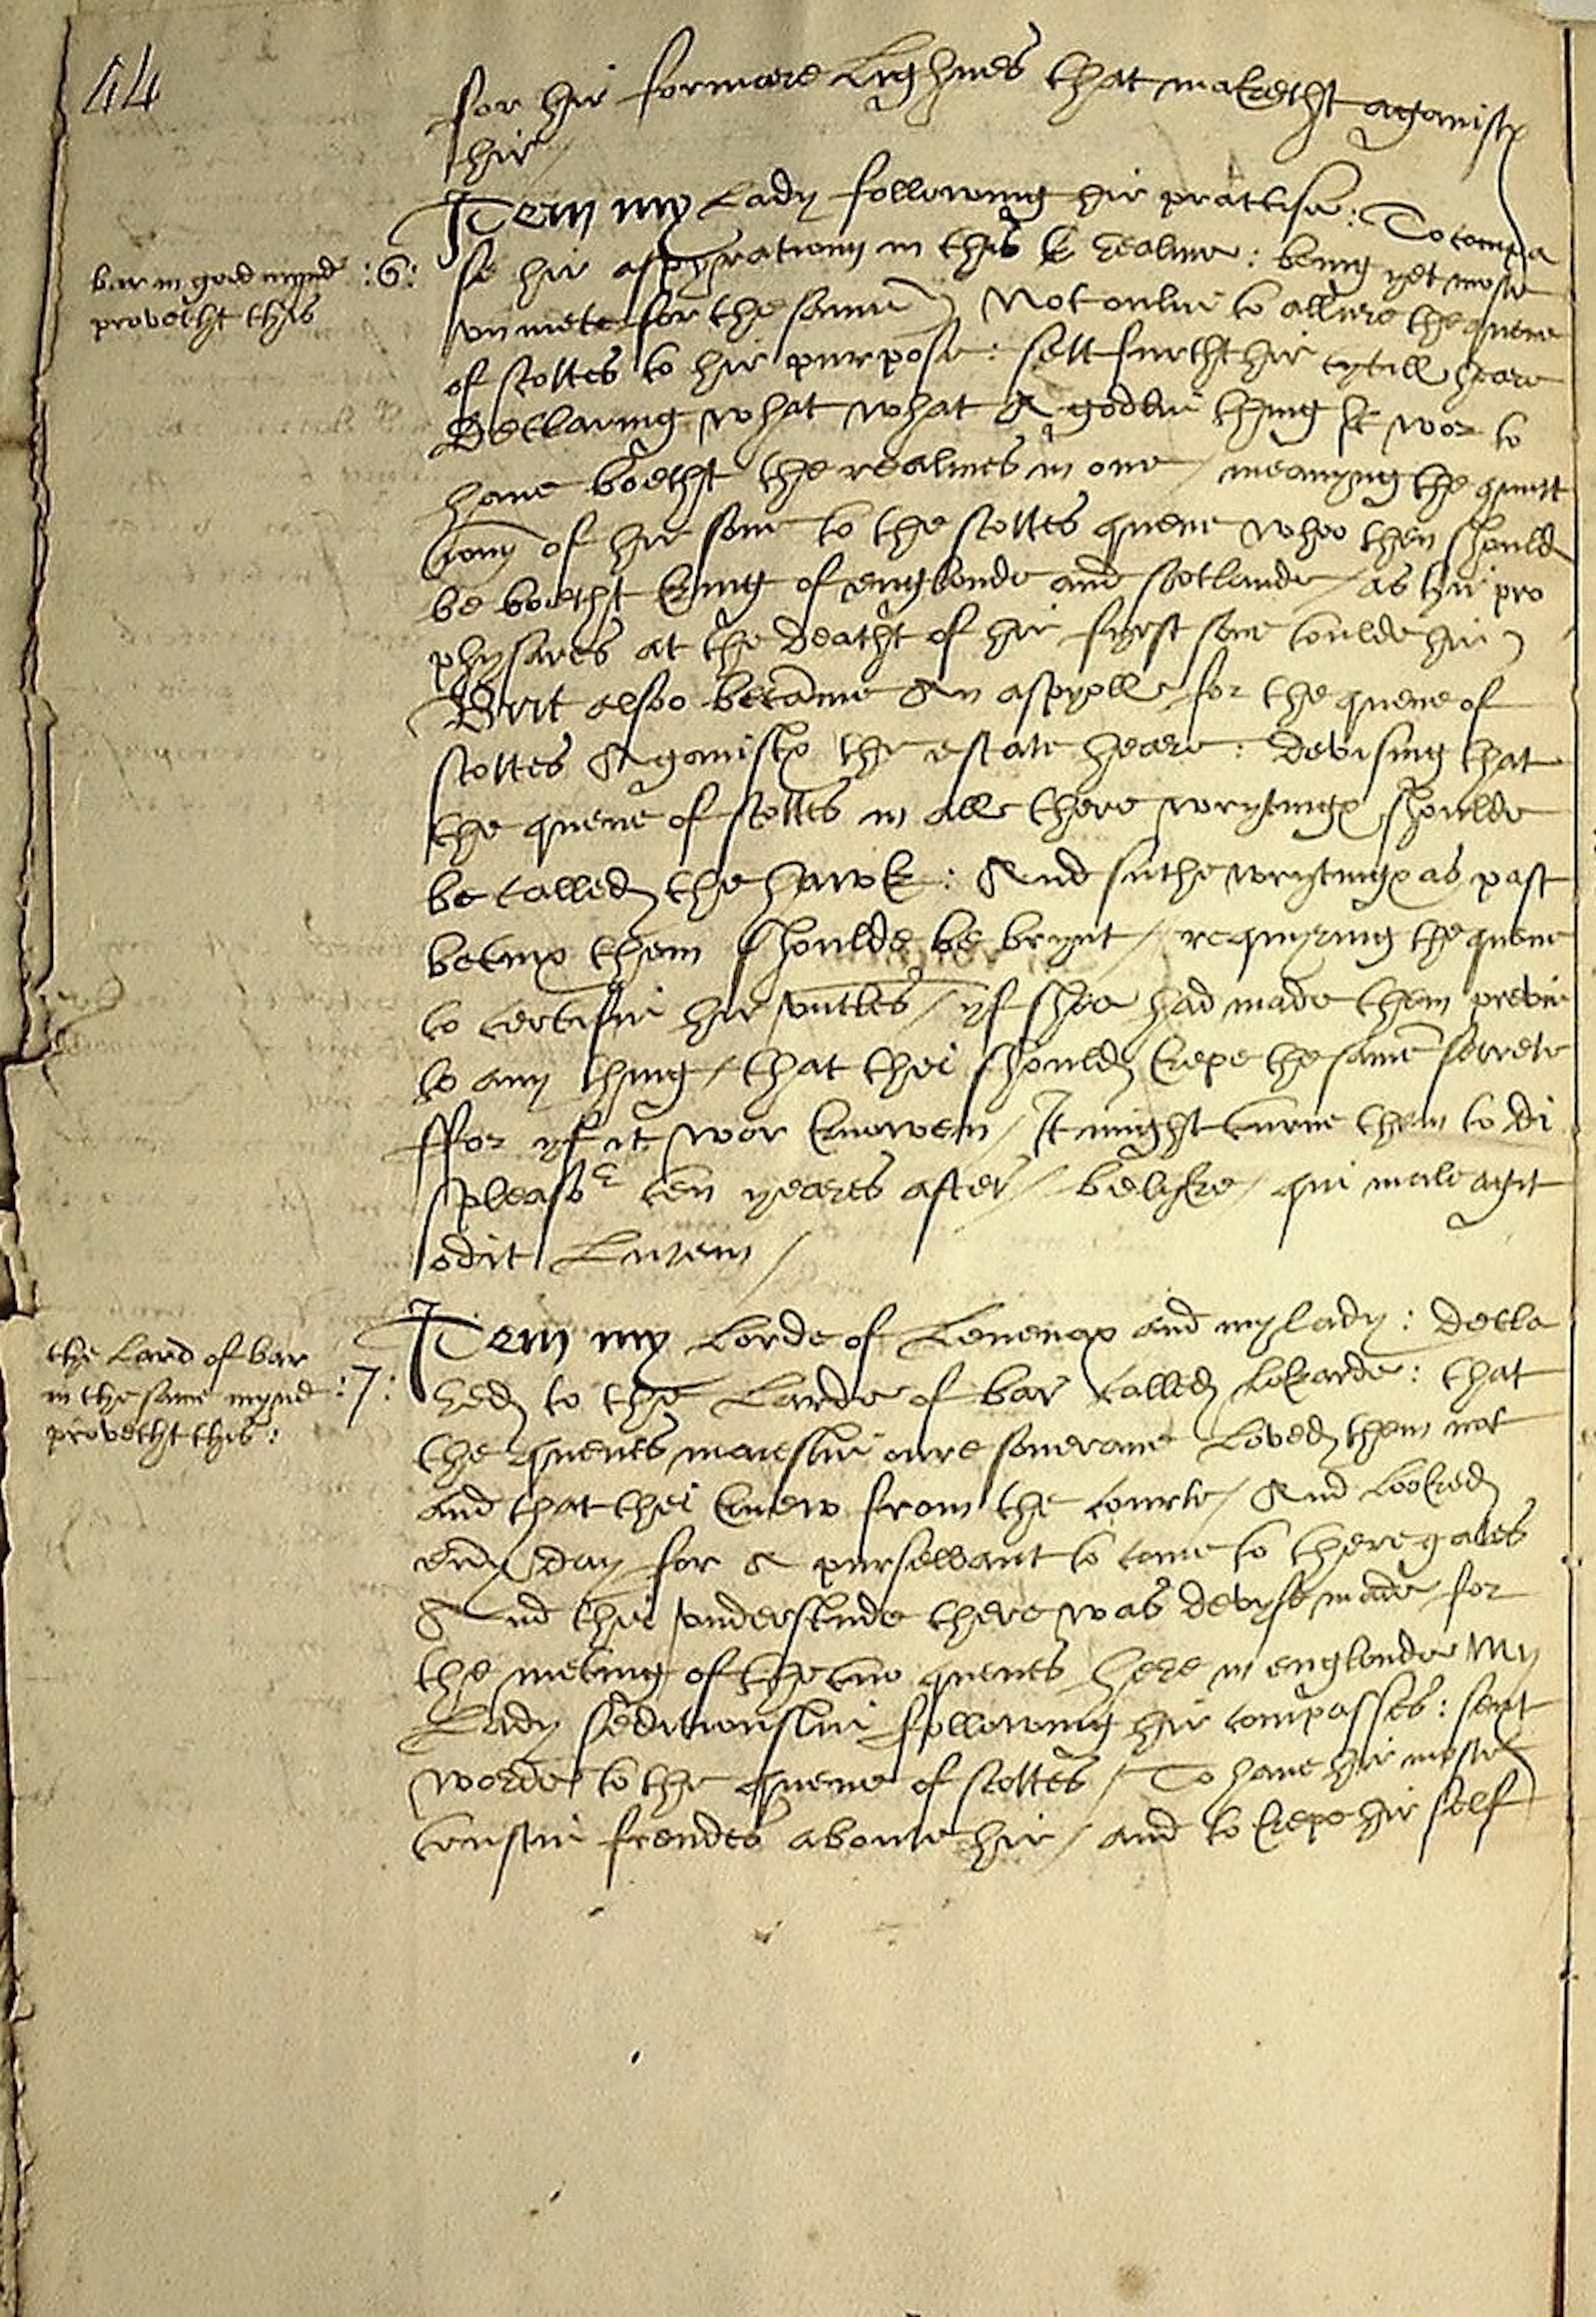 44
for hir formare Lyghnes that makethe aganist
hir /
Item my Lady following hir practise: To compa
bar in good mynd :6: se hir aspyrationn in this realme: being yet most
provetht this
vnmete for the same) Not onlie to allure the quene
of scottes to hir purpose: sett furtht hir tytill heare
Declaring what what A godlie thing It wor to
have boetht the realmes in one / meanyng the
of hir sone to the scottes quene whoo then should
be boetht king of englonde and scotlande / as hir pro
physares at the deatht of hir fyrst sone toulde hir)
But alsoo became An aspyall for the quene of
scottes Aganist the estate heare: devising that
the quene of scottes in all there wrytings shoulde
be called the hawk: And suche wrytings as past
betwix them shoulde be brynt / requyring the quene
to certifie hir vncles / yf shee had made them previe
to any thing / that thei should kepe the same secrete
ffor yf it wor knowen / It might turne them to di
spleasr ten yeares after / belyke / qui male agit
odit Lucem /
Item my Lorde of Levenax and my lady: decla
the Lard of bar
in the same mynd :7: red to the Larde of bar called Lokarde: that
provetht this:
the quenes maiestie oure soverane Loved them not
and that thei knew from the courte / And Looked
every day for A pursevvant to come to there gates
And thei vnderstude there was devyse made for
the meting of the two quenes here in englonde My
Lady seditiouslie following hir compasses: sent
worde to the quene of scottes / To have hir moste
trustie frendes aboute hir / and to kepe hir self